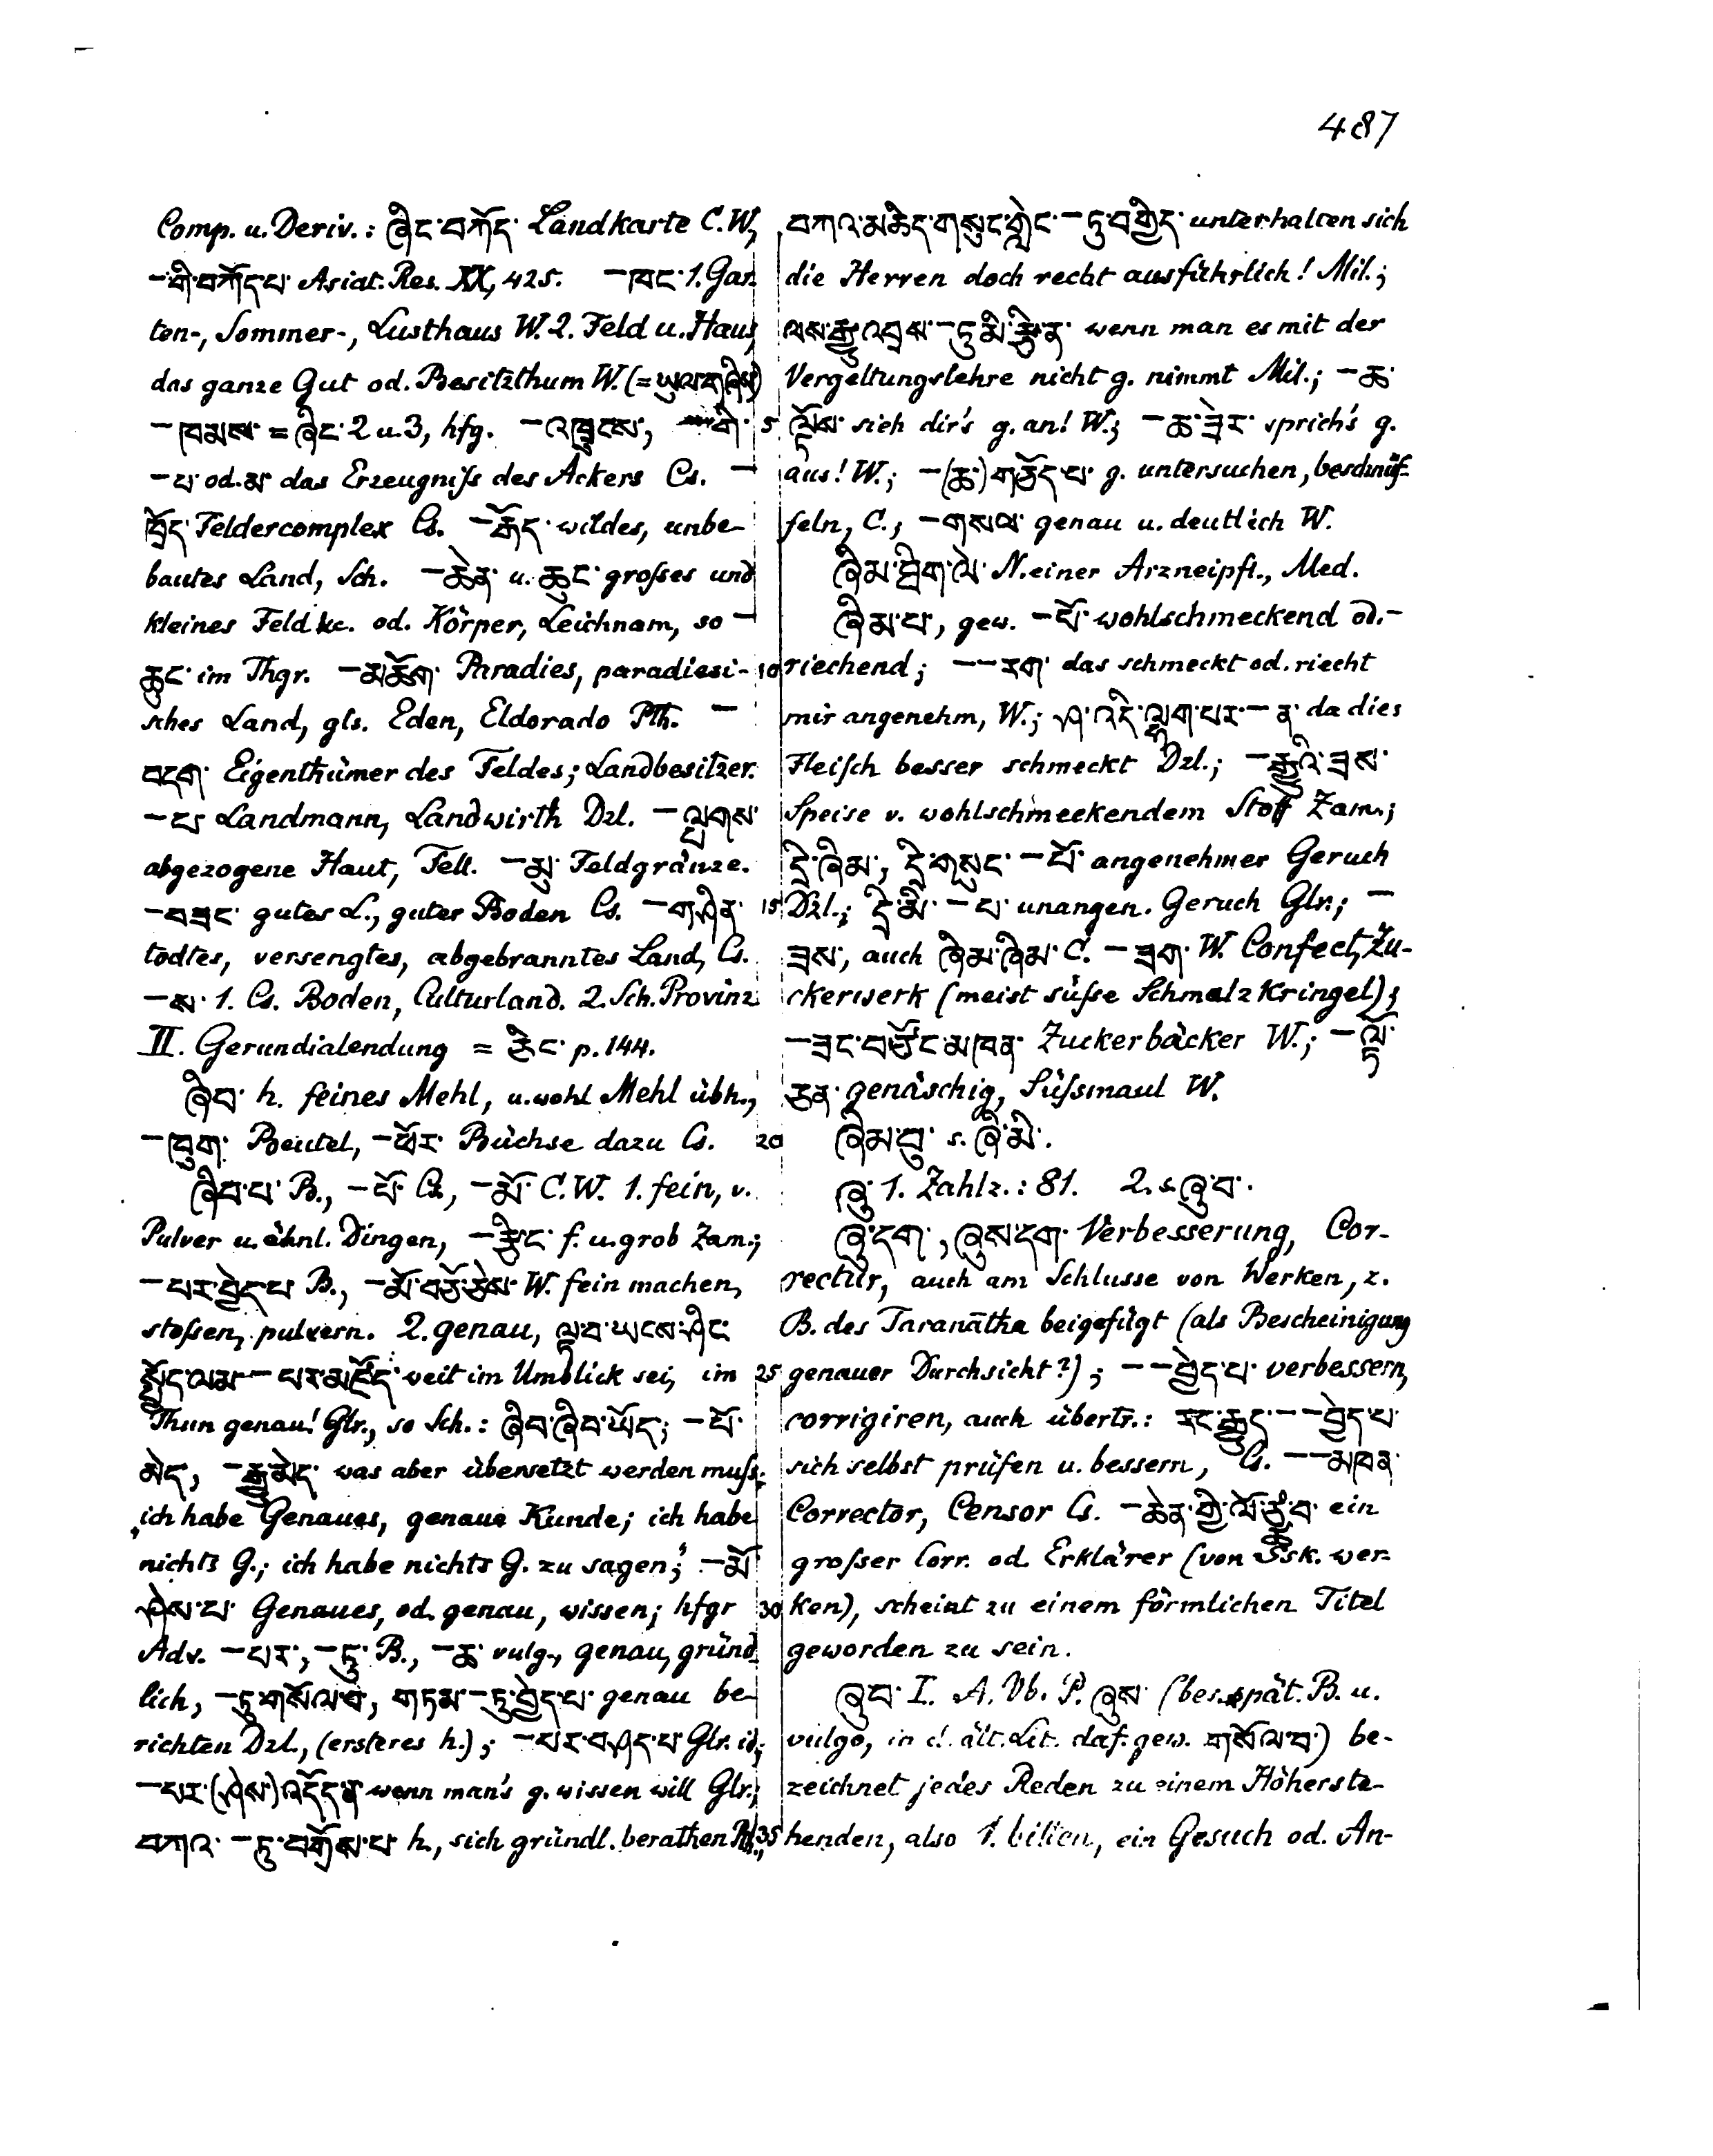 487
Comp. u. Deriv.: ཞིང་བཀོད་ Landkarte C.W,
–གི་བཀོད་པ་ Asiat. Res. XX, 425. –ཁང་ 1. Gar-
ten-, Sommer-, Lusthaus W. 2. Feld u. Haus,
das ganze Gut od. Besitzthum W. (=ཡུལ་གཞིས)
–ཁམས་ = ཞིང་ 2 u. 3, hfg. –འཁྲུངས་, –གི་ 5
–པ་ od. མ་ das Erzeugniſs des Ackers Cs. –
ཁྲོད་ Feldercomplex Cs. –རྒོད་ wildes, unbe-
bautes Land, Sch. –ཆེན་ u. ཆུང་ groſses und
kleines Feld &c. od. Körper, Leichnam, so –
ཆུང་ im Thgr. –མཆོག་ Paradies, paradiesi- 10
sches Land, gls. Eden, Eldorado Pth. –
བདག་ Eigenthümer des Feldes; Landbesitzer.
–པ་ Landmann, Landwirth Dzl. –ལྤགས་
abgezogene Haut, Fell. –མུ་ Feldgränze.
–བཟང་ gutes L., guter Boden Cs. –གཤིན་ 15
todtes, versengtes, abgebranntes Land, Cs.
–ས་ 1. Cs. Boden, Culturland. 2. Sch. Provinz
II. Gerundialendung = ཅིང་ p. 144.
ཞིབ་ h. feines Mehl, u. wohl Mehl übh.,
–ཁུག་ Beutel, –ཕོར་ Büchse dazu Cs. 20
ཞིབ་པ་ B., –པོ་ Cs., –མོ་ C.W. 1. fein, v.
Pulver u. ähnl. Dingen, –རྩིང་ f. u. grob Zam.;
–པར་བྱེད་པ་ B., –མོ་བཅོ་ཅེས་ W. fein machen,
stoſsen, pulvern. 2. genau, ལྟ་བ་ཡངས་ཤིང་
སྤྱོད་ལམ་– པར་མཛོད་ weit im Umblick sei, im 25
Thun genau! Glr., so Sch.: ཞིབ་ཞིབ་ཡོད་; –པོ་
མེད་, –རྒྱུ་མེད་ was aber übersetzt werden muſs:
„ich habe Genaues, genaue Kunde; ich habe
nichts G.; ich habe nichts G. zu sagen“; –མོ་
ཤེས་པ་ Genaues, od. genau, wissen; hfgr 30
Adv. –པར་, –ཏུ་ B., –ཆ་ vulg., genau, gründ-
lich, –ཏུ་གསོལ་བ་, གཏམ་–ཏུ་བྱེད་པ་ genau be-
richten Dzl., (ersteres h.); –པར་བཤད་པ་ Glr. id;
–པར་(ཤེས་)འདོད་ན་ wenn man's g. wissen will Glr.;
བཀའ་ –ཏུ་བགྲོས་པ་ h., sich gründl. berathen Pth., 35
བཀའ་མཆིད་གསུང་གླེང་–ཏུ་བགྱིད་ unterhalten sich
die Herren doch recht ausführlich! Mil.;
ལས་རྒྱུ་འབྲས་–ཏུ་མི་རྩི་ན་ wenn man es mit der
Vergeltungslehre nicht g. nimmt Mil.; –ཆ་
ལྟོས་ sieh dir's g. an! W.; –ཆ་ཟེར་ sprich's g.
aus! W.; –(ཆ་)གཅོད་པ་ g. untersuchen, beschnüf-
feln, C.; –གསལ་ genau u. deutlich W.
ཞིམ་ཐིག་ལེ་ N. einer Arzneipfl., Med.
ཞིམ་པ་, gew. –པོ་ wohlschmeckend od.-
riechend; ––རག་ das schmeckt od. riecht
mir angenehm, W.; ཤ་འདི་ལྷག་པར་–ན་ da dies
Fleiſch besser schmeckt Dzl.; –རྒྱུའི་ཟས་
Speise v. wohlschmeckendem Stoff Zam.;
དྲི་ཞིམ་, དྲི་གསུང་–པོ་ angenehmer Geruch
Dzl.; དྲི་མི་ –པ་ unangen. Geruch Glr.; –
ཟས་, auch ཞིམ་ཞིམ་ C. –ཟག་ W. Confect, Zu-
ckerwerk (meist süſse Schmalzkringel);
–ཟང་བཅོང་མཁན་ Zuckerbäcker W.; –ལྟོ་
ཅན་ genäschig, Süſsmaul W.
ཞིམ་བུ་ s. ཞི་མི་.
ཞུ་ 1. Zahlz.: 81. 2. s. ཞུ་བ་.
ཞུ་དག་, ཞུས་དག་ Verbesserung, Cor-
rectur, auch am Schlusse von Werken, z.
B. des Taranātha beigefügt (als Bescheinigung
genauer Durchsicht?); ––བྱེད་པ་ verbessern,
corrigiren, auch übertr.: རང་རྒྱུད་––བྱེད་པ་
sich selbst prüfen u. bessern, Cs. ––མཁན་
Corrector, Censor Cs. –ཆེན་གྱི་ལོ་ཙཱ་བ་ ein
groſser Corr. od. Erklärer (von Ssk. wer-
ken), scheint zu einem förmlichen Titel
geworden zu sein.
ཞུབ་ I. A. Vb. P. ཞུས་ (bes. spät. B. u.
vulgo, in d. ält. Lit. daf. gew. གསོལ་བ་) be-
zeichnet jedes Reden zu einem Höherste-
henden, also 1. bitten, ein Gesuch od. An-